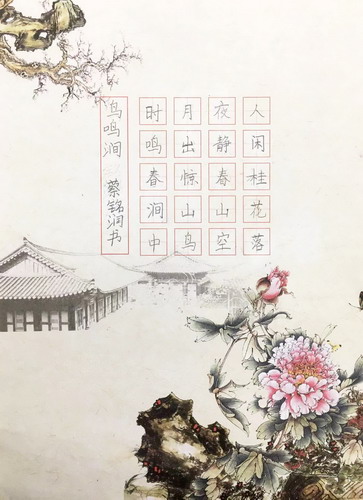 人闲桂花落
夜静春山空
月出惊山鸟
时鸣春涧中
鸟鸣涧 蔡铭润书